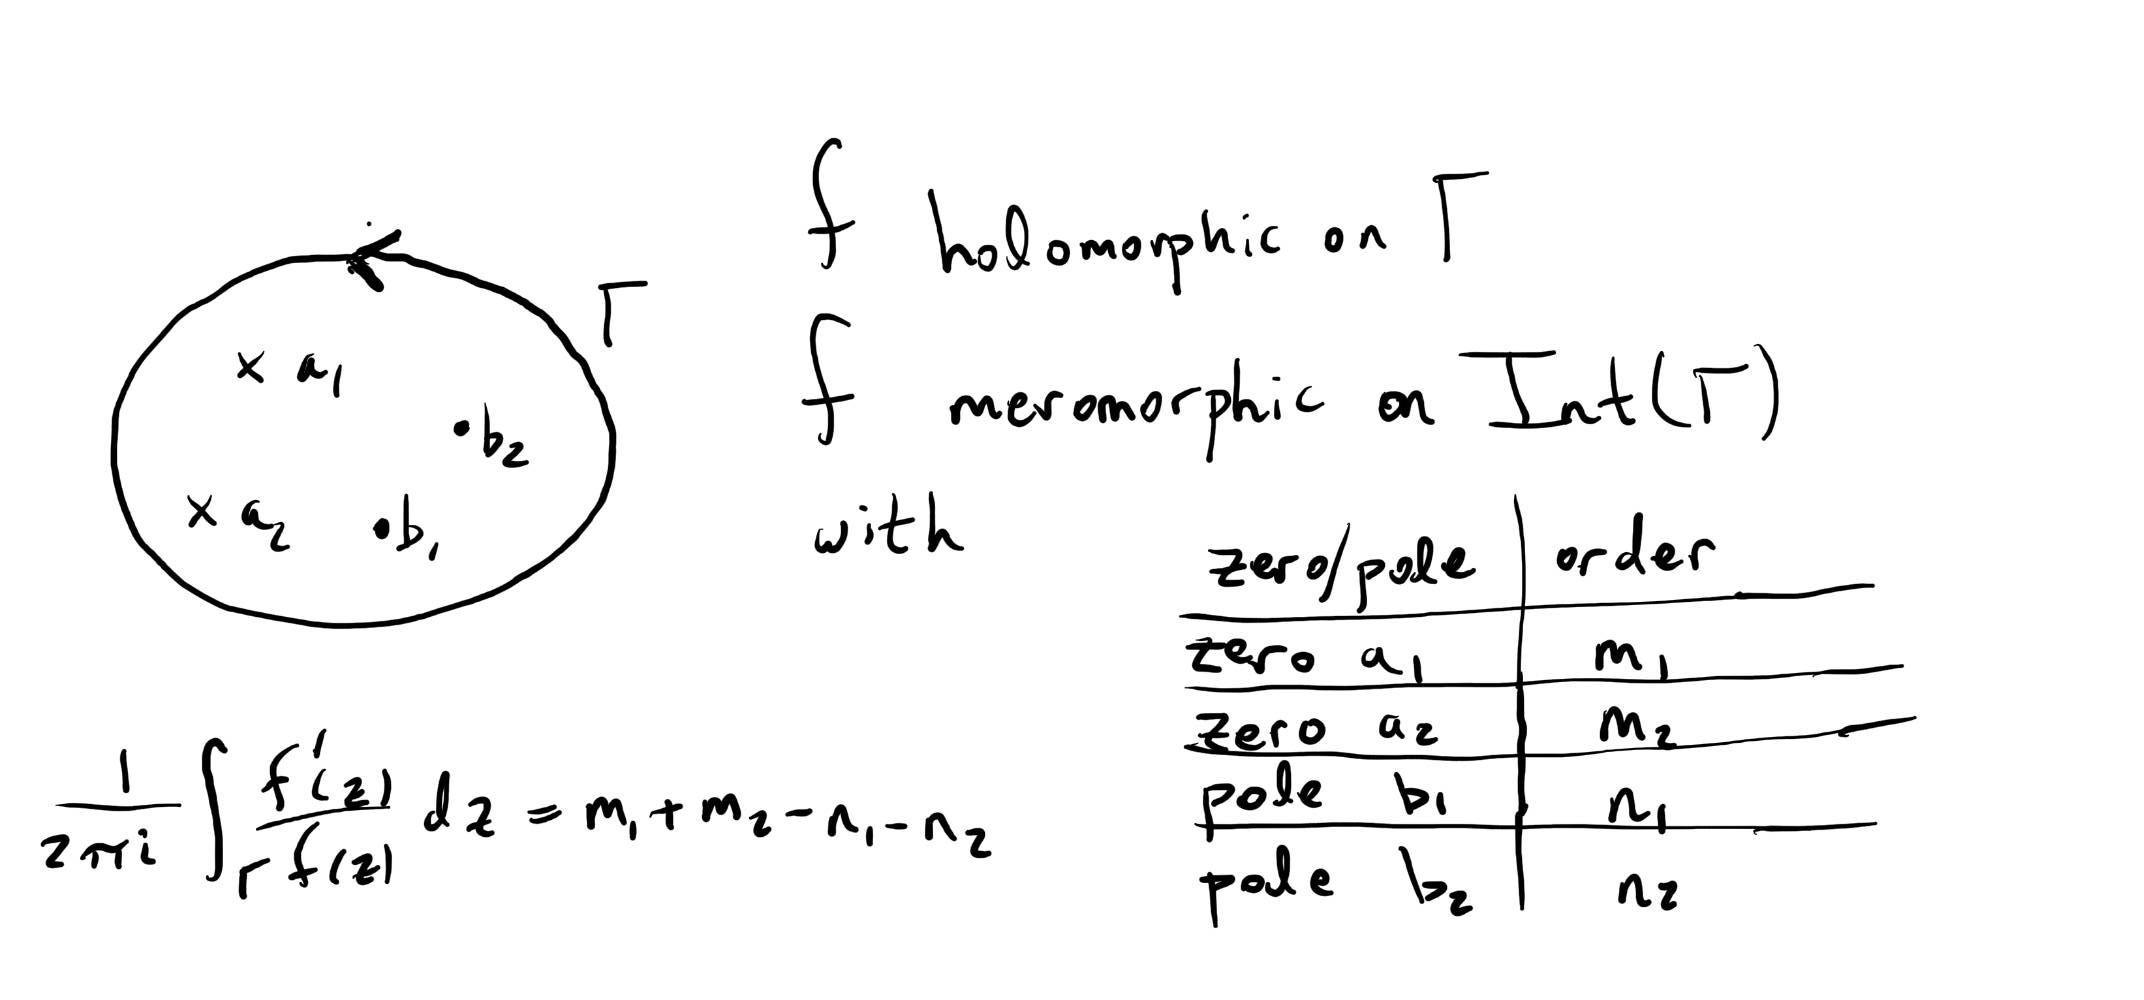 f holomorphic on Γ
Γ
× a₁
f meromorphic on Int(Γ)
•b₂
× a₂ •b₁
with
zero/pole | order
zero a₁ | m₁
zero a₂ | m₂
pole b₁ | n₁
pole b₂ | n₂
1/(2πi) ∫_Γ f'(z)/f(z) dz = m₁ + m₂ - n₁ - n₂